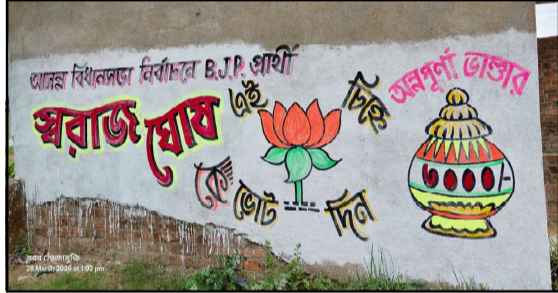 আসন্ন বিধানসভা নির্বাচনে B.J.P. প্রার্থী
স্বরাজ ঘোষ
কে
এই
চিহ্নে
ভোট দিন
অন্নপূর্ণা ভান্ডার
৩০০০/-
খবর সোজাসুজি
28 March 2026 at 1:02 pm